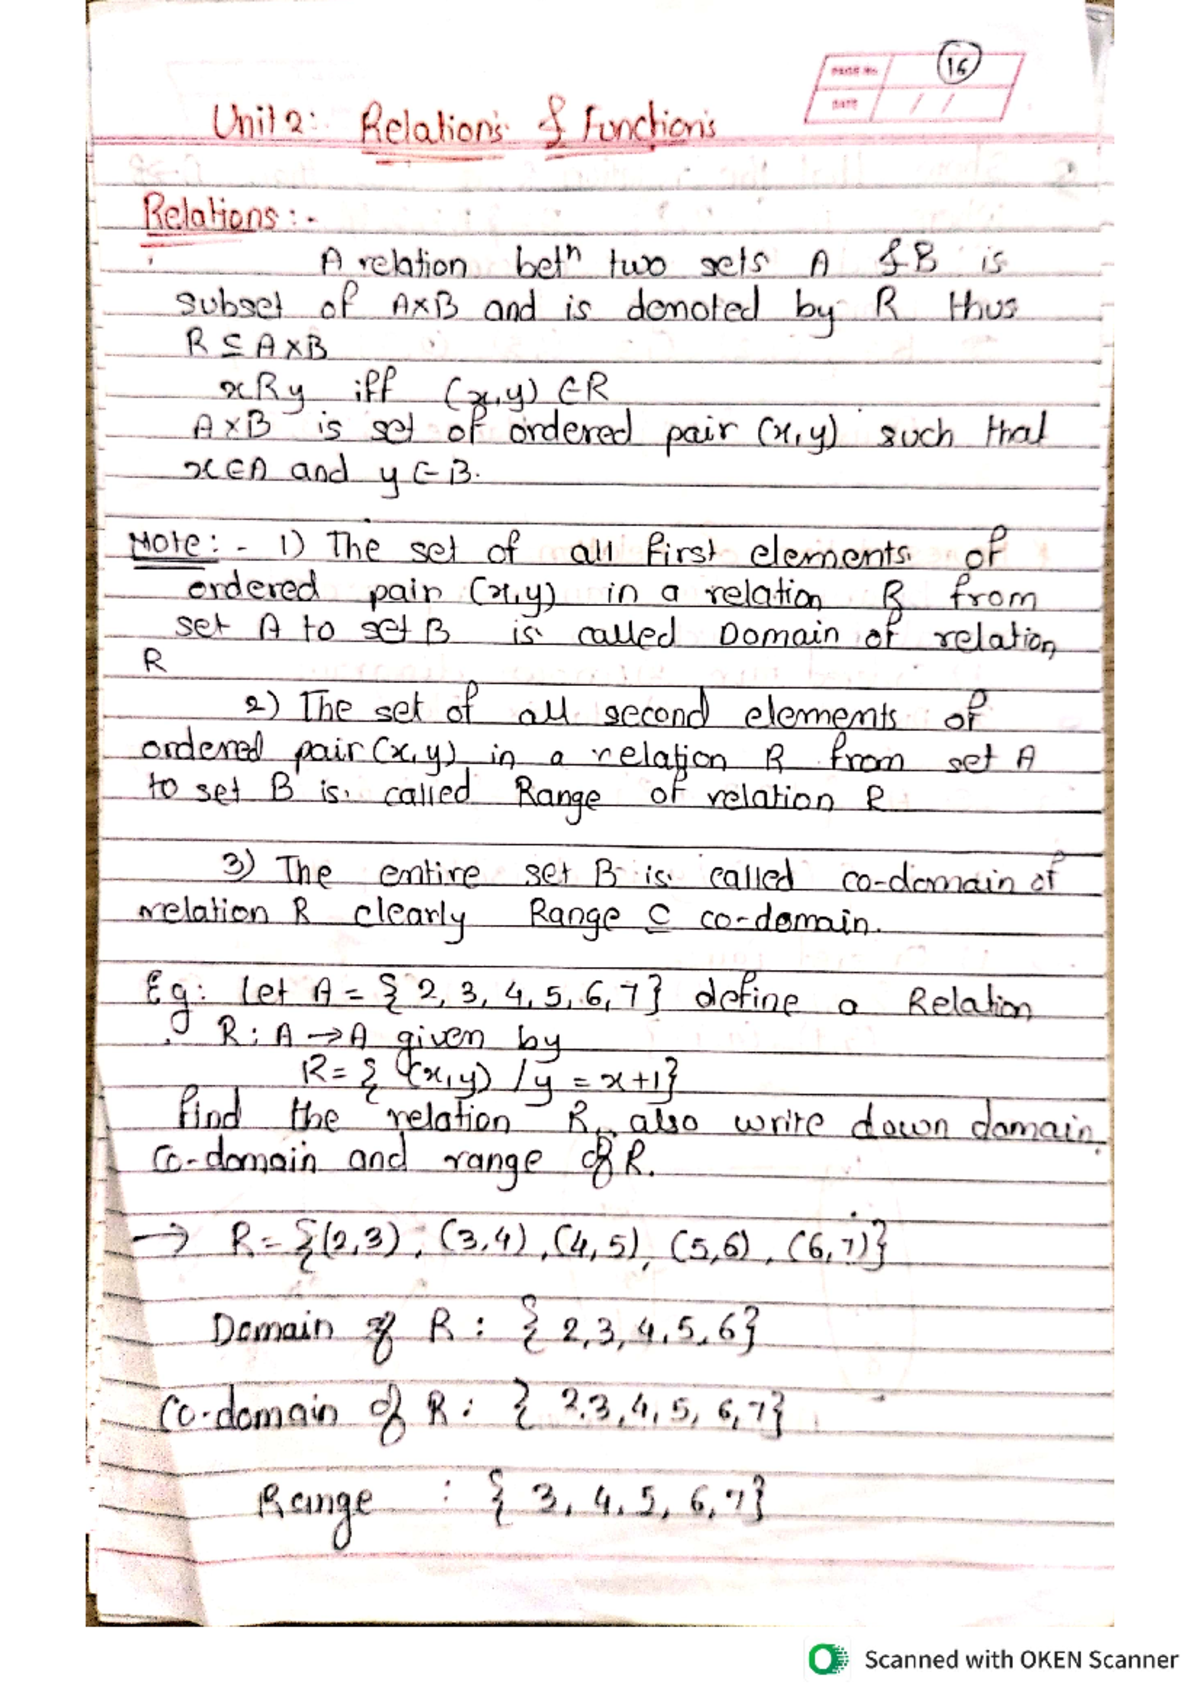 PAGE No. 16
DATE / /
Unit 2: Relations & Functions
Relations :-
A relation betn two sets A & B is
subset of A×B and is denoted by R thus
R ⊆ A×B
xRy iff (x,y) ∈ R
A×B is set of ordered pair (x,y) such that
x∈A and y∈B.
Note:- 1) The set of all first elements of
ordered pair (x,y) in a relation R from
set A to set B is called Domain of relation
R
2) The set of all second elements of
ordered pair (x,y) in a relation R from set A
to set B is called Range of relation R
3) The entire set B is called co-domain of
relation R clearly Range ⊆ co-domain.
Eg: Let A = {2, 3, 4, 5, 6, 7} define a Relation
R: A → A given by
R = {(x,y) / y = x+1}
find the relation R, also write down domain,
co-domain and range of R.
→ R = {(2,3), (3,4), (4,5), (5,6), (6,7)}
Domain of R : {2,3,4,5,6}
Co-domain of R : {2,3,4,5,6,7}
Range : {3,4,5,6,7}
Scanned with OKEN Scanner